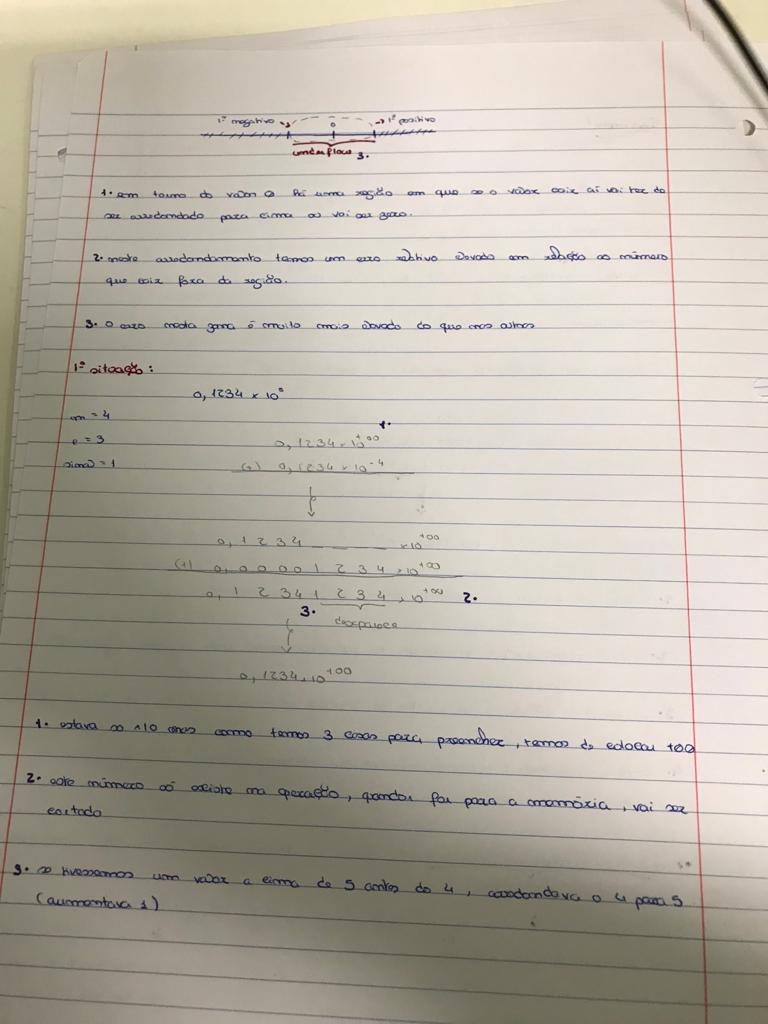 1º negativo 0 1º positivo
underflow 3.
1. em torno do valor 0 há uma região em que se o valor caix aí vai ter de
ser arredondado para cima ou vai ser zero.
2. neste arredondamento temos um erro relativo elevado em relação ao número
que caix fora da região.
3. o erro nesta zona é muito mais elevado do que nos outros
1º situação:
0,1234 x 10⁰
m = 4
e = 3
sinal = 1
1.
0,1234 x 10⁺⁰⁰
(+) 0,1234 x 10⁻⁴
0,1234 x 10⁺⁰⁰
(+) 0,00001234 x 10⁺⁰⁰
0,12341234 x 10⁺⁰⁰ 2.
3. desaparece
0,1234 x 10⁺⁰⁰
1. estava só 10 mas como temos 3 casas para preencher, temos de colocar +00
2. este número só existe na operação, quando for para a memória, vai ser
cortado
3. se tivessemos um valor a cima de 5 antes do 4, arredondava o 4 para 5
(aumentava 1)